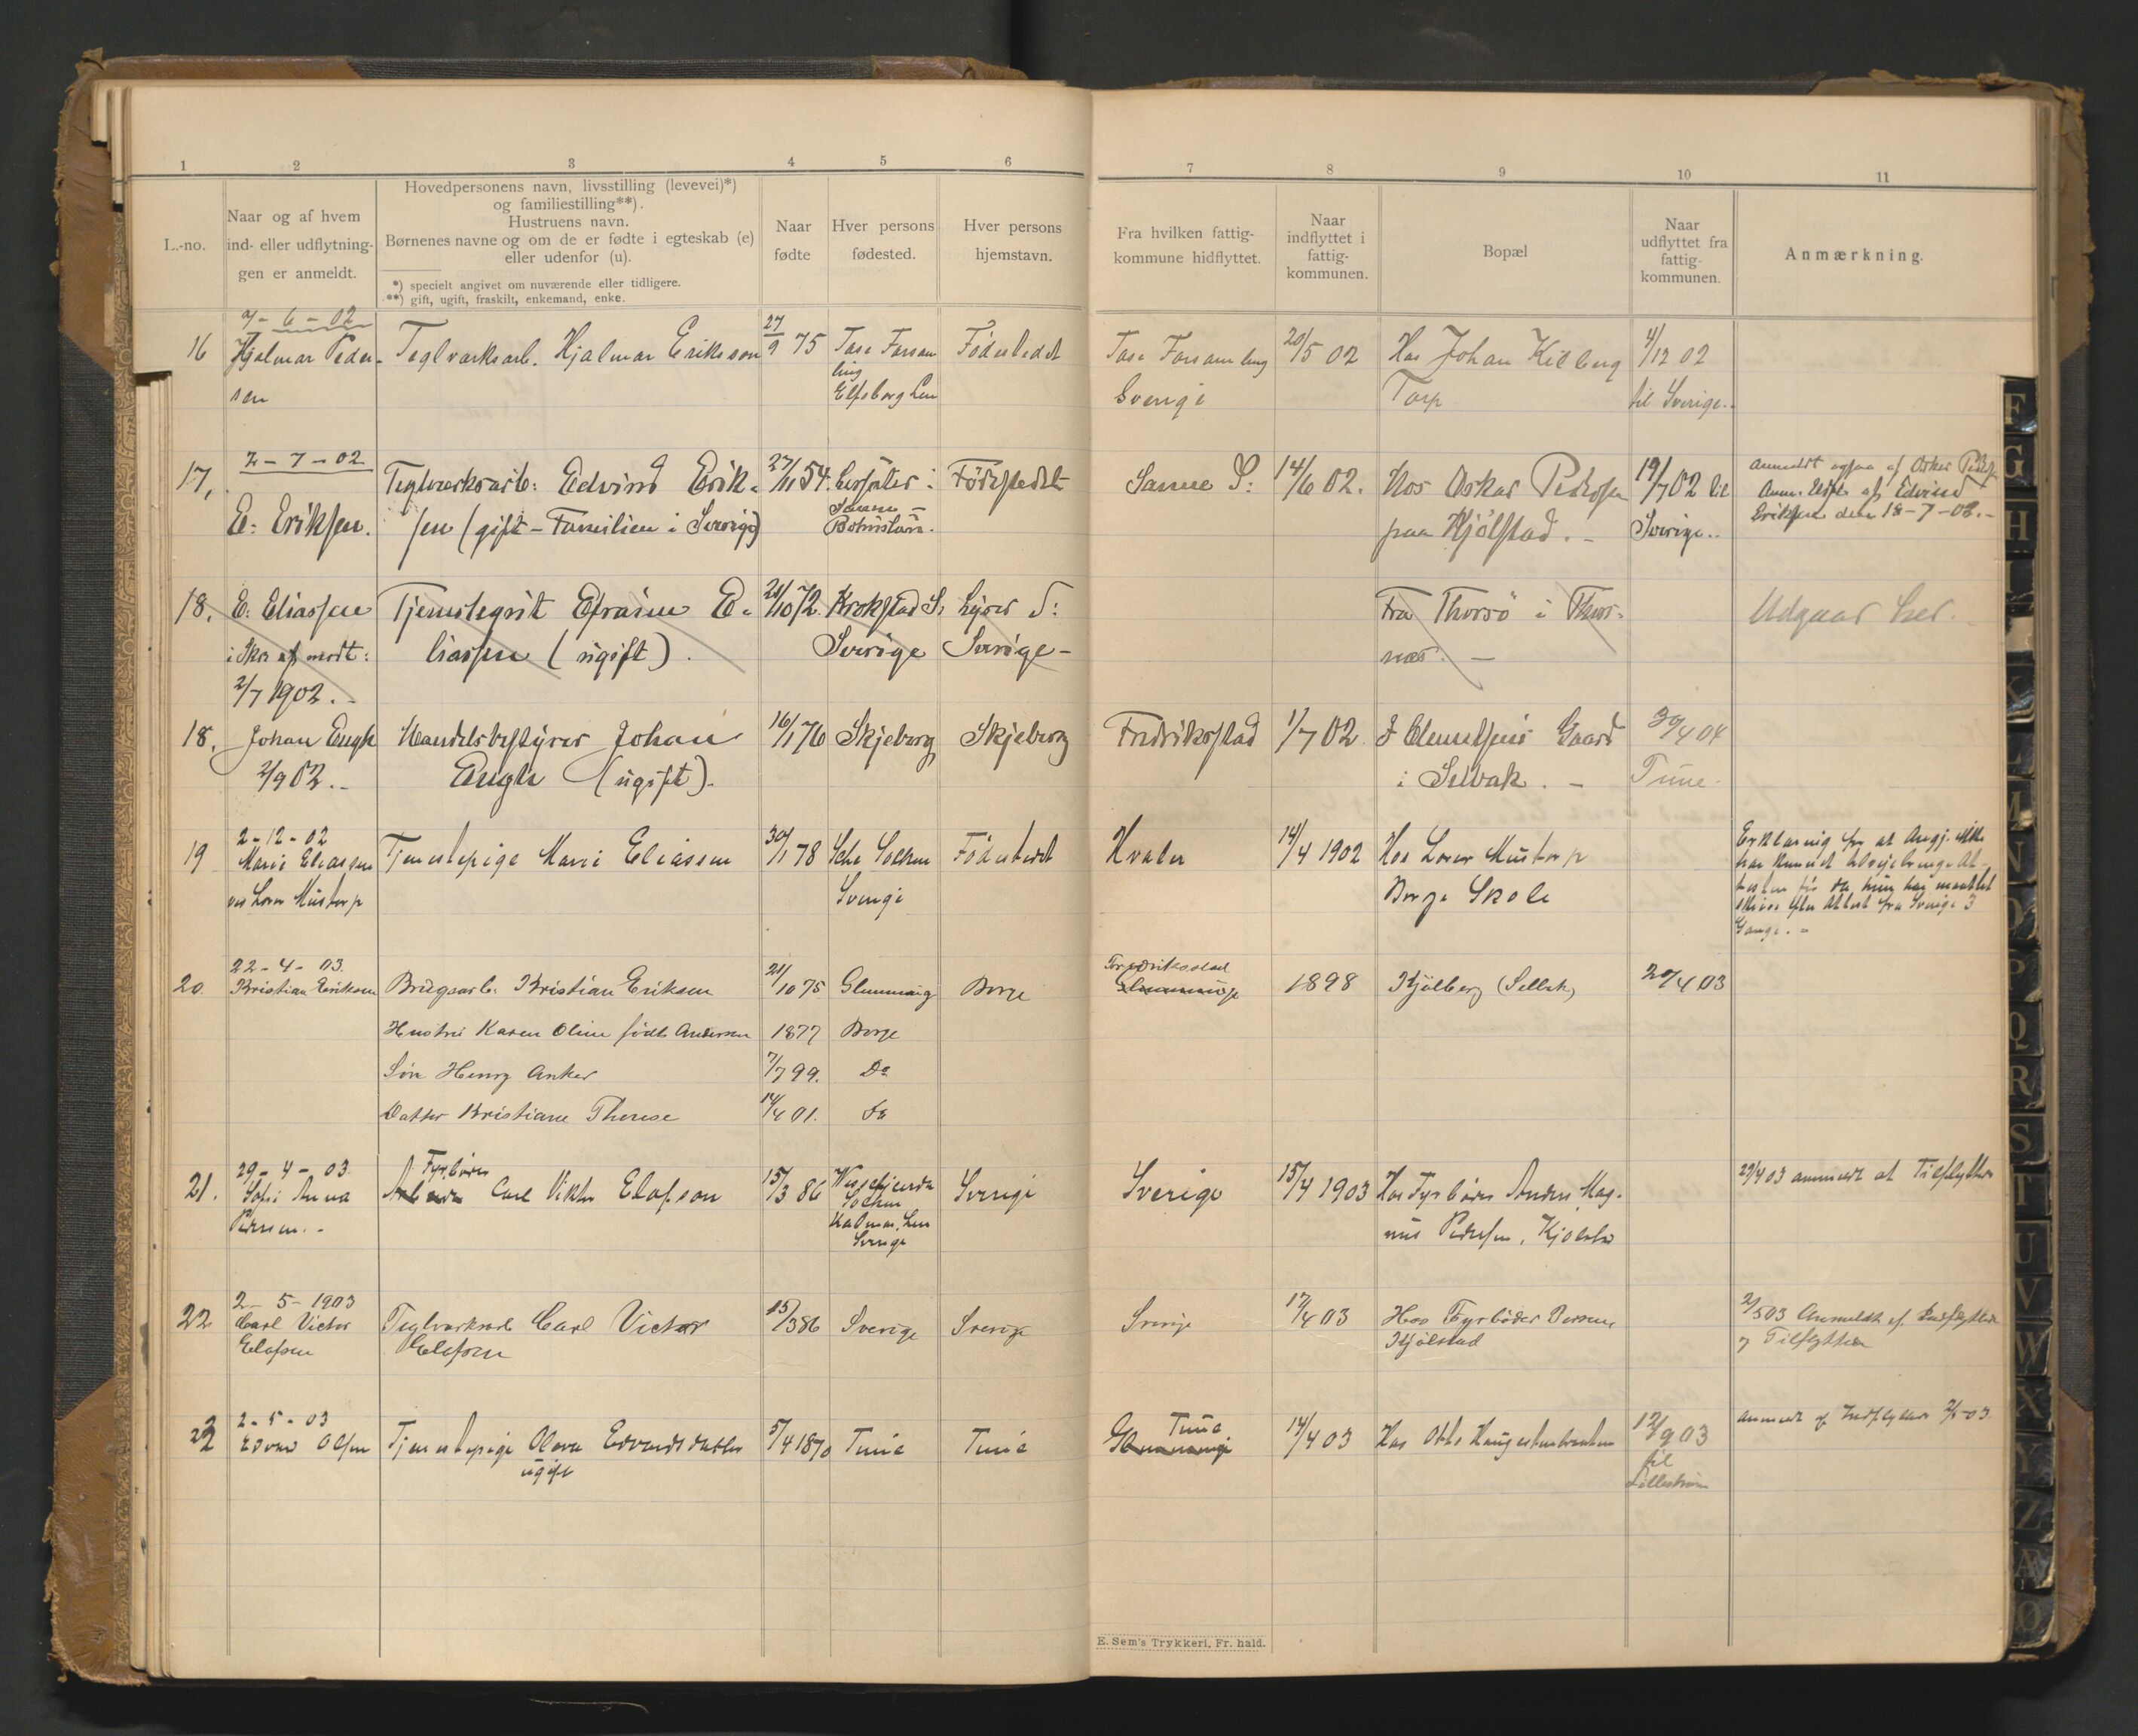 1 2 3 4 5 6 7 8 9 10 11
L.-no.
Naar og af hvem
ind- eller udflytnin-
gen er anmeldt.
Hovedpersonens navn, livsstilling (levevei)*)
og familiestilling**).
Hustruens navn.
Børnenes navne og om de er fødte i egteskab (e)
eller udenfor (u).
*) specielt angivet om nuværende eller tidligere.
**) gift, ugift, fraskilt, enkemand, enke.
Naar
fødte
Hver persons
fødested.
Hver persons
hjemstavn.
Fra hvilken fattig-
kommune hidflyttet.
Naar
indflyttet i
fattig-
kommunen.
Bopæl
Naar
udflyttet fra
fattig-
kommunen.
Anmærkning.
7-6-02
16 Hjalmar Peder- Teglverksarb. Hjalmar Eriksson 27/9 75 Tose Forsam Fødestedet Tose Forsamling 20/5 02 Hos Johan Kilberg 4/12 02
sen ling Sverige Torp til Sverige.
Elfsborg Len
2-7-02
17, Teglverksarb: Edvind Erik- 27/11 54. i Fødestedet Samme S: 14/6 02. Hos Oskar Pedersen 19/7 02 til anmeldt ogsaa af Oskar Peders
E: Eriksen. sen (gift - Familien i Sverige) Bohuslæn. paa Kjølstad. - Sverige.. Anm. af Edvind
Eriksen den 18-7-02.-
18. E: Eliassen Tjenestegut Efraim E- 21/10 72. Krokstad S: S: Fra Thorsø i Thors- Udgaar her.
i Skr af modt: liassen (ugift). Sverige Sverige- næs. -
2/7 1902.-
18. Johan Engh Handelsbestyrer Johan 16/1 76 Skjeberg Skjeberg Fredriksstad 1/7 02 J Clemetsens Gaard 30/4 04
2/9 02.- Engh (ugift). i Selbak. - Tune.
2-12-02
19 Marie Eliassen Tjenestepige Marie Eliassen 30/1 78 Socken Fødestedet Hvaler 14/4 1902 Hos Lærer Mustorp Erklæring for at Angj. ikke
ved Lærer Mustorp Sverige Borge Skole har kunnet tilveiebringe At-
testen før da hun har maattet
skrive efter Attest fra Sverige 3
Gange. -
22-4-03. Fredriksstad
20. Kristian Eriksen Brugsarb. Kristian Eriksen 21/10 75 Glemminge Borge Glemminge 1898 Kjølberg (Selbak) 20/4 03
Hustru Karen Oline født Andersen 1877 Borge
Søn Henry Anker 7/7 99. Do
Datter Kristiane Therese 14/4 01. do
29-4-03. Fyrbøder
21. Sofie Anna Carl Viktor Elofson 15/3 86 Sverige Sverige 15/4 1903 Hos Fyrbøder Anders Mag- 29/4 03 anmeldt at Tilflytter
Pedersen.- Socken nus Pedersen, Kjølstad
Kalmar Len
Sverige
2-5-1903
22 Carl Victor Teglverksarb Carl Victor 15/3 86 Sverige Sverige Sverige 17/4 03 Hos Fyrbøder 2/5 03 Anmeldt af Indflytter
Elofsen Elofsen Kjølstad og Tilflytter
2-5-03 Tune
22 Edvard Olsen Tjenestepige Olava Edvardsdatter 5/4 1870 Tune Tune Glemminge 14/4 03 Hos Otto 12/9 03 anmeldt af Indflytter 2/5-03.
ugift til
Lillestrøm
E. Sem's Trykkeri, Fr. hald.
F
G
H
I
K
L
M
N
O
P
Q
R
S
T
U
V
W
X
Y
Z
Æ
Ø